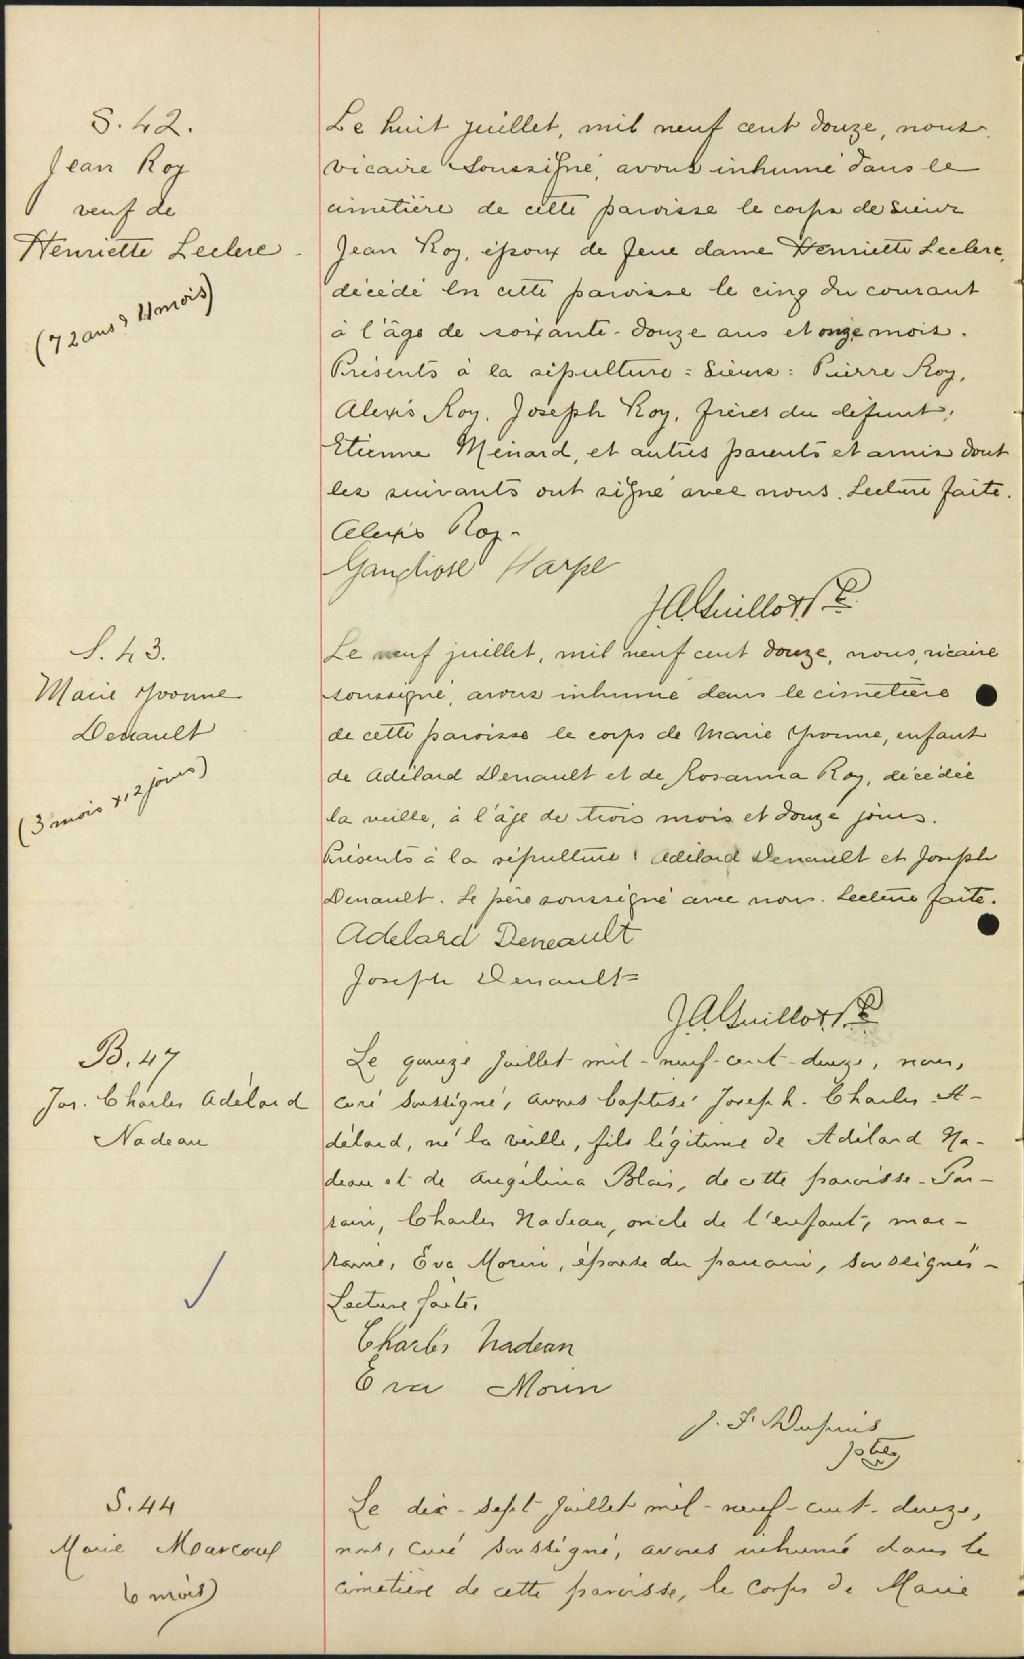 S. 42.
Jean Roy
veuf de
Henriette Leclerc
(72 ans & 11 mois)
Le huit juillet, mil neuf cent douze, nous,
vicaire soussigné, avons inhumé dans le
cimetière de cette paroisse le corps de Sieur
Jean Roy, époux de feue dame Henriette Leclerc,
décédé en cette paroisse le cinq du courant
à l'âge de soixante-douze ans et onze mois.
Présents à la sépulture : Sieurs : Pierre Roy,
Alexis Roy, Joseph Roy, frères du défunt,
Etienne Ménard, et autres parents et amis dont
les suivants ont signé avec nous. Lecture faite.
Alexis Roy
J.A. Guillot Ptr
S. 43.
Marie Yvonne
Denault
(3 mois & 12 jours)
Le neuf juillet, mil neuf cent douze, nous, vicaire
soussigné, avons inhumé dans le cimetière
de cette paroisse le corps de Marie Yvonne, enfant
de Adélard Denault et de Rosanna Roy, décédée
la veille, à l'âge de trois mois et douze jours.
Présents à la sépulture : Adélard Denault et Joseph
Denault. Le père soussigné avec nous. Lecture faite.
Adelard Deneault
Joseph Denault
J.A. Guillot Ptr
B. 47
Jos. Charles Adélard
Nadeau
Le quinze juillet mil-neuf-cent-douze, nous,
curé soussigné, avons baptisé Joseph-Charles-A-
délard, né la veille, fils légitime de Adélard Na-
deau et de Angélina Blais, de cette paroisse - Par-
rain, Charles Nadeau, oncle de l'enfant, mar-
raine, Eva Morin, épouse du parrain, soussignés -
Lecture faite.
Charles Nadeau
Eva Morin
J. F. Dupuis
ptre
S. 44
Marie Marcoux
6 mois)
Le dix-sept juillet mil-neuf-cent-douze,
nous, curé soussigné, avons inhumé dans le
cimetière de cette paroisse, le corps de Marie